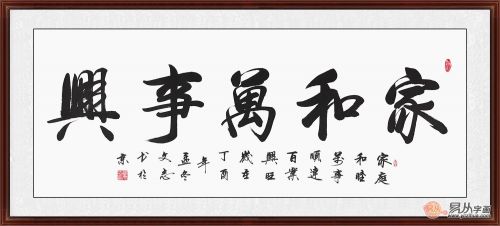 家和萬事興
家庭
和睦
萬事
順達
百業
興旺
歲在
丁酉
年
孟冬
文志
书於
京
易从字画